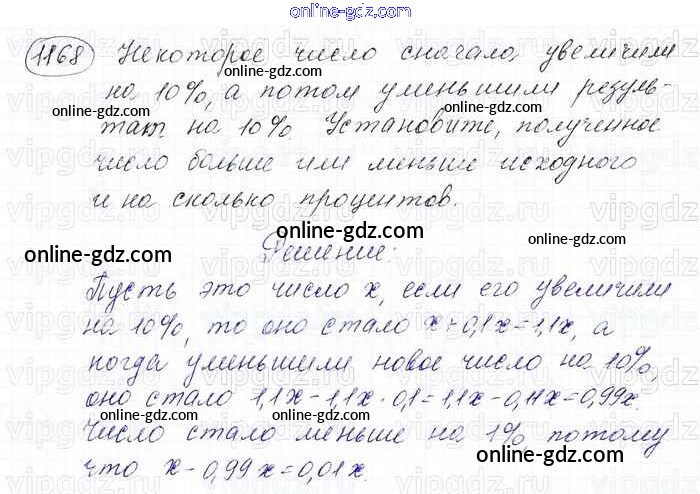 online-gdz.com
online-gdz.com
1168 Некоторое число сначала, увеличили
на 10%, а потом уменьшили резуль-
тат на 10% Установите, полученное
число больше или меньше исходного
и на сколько процентов.
online-gdz.com
online-gdz.com
Решение:
Пусть это число x, если его увеличили
на 10%, то оно стало x+0,1x=1,1x, а
когда уменьшили новое число на 10%,
оно стало 1,1x-1,1x·0,1=1,1x-0,11x=0,99x.
online-gdz.com
online-gdz.com
Число стало меньше на 1% потому
что x-0,99x=0,01x.
online-gdz.com
online-gdz.com